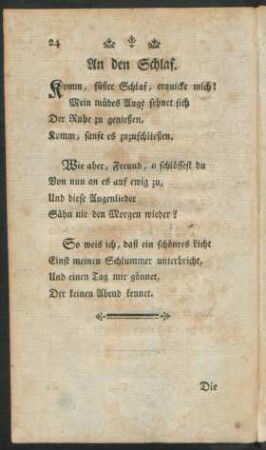 24
An den Schlaf.
Komm, süßer Schlaf, erquicke mich!
Mein müdes Auge sehnet sich
Der Ruhe zu genießen,
Komm, sanft es zuzuschließen.
Wie aber, Freund, o schlössest du
Von nun an es auf ewig zu,
Und diese Augenlieder
Sähn nie den Morgen wieder?
So weis ich, daß ein schönres Licht
Einst meinen Schlummer unterbricht,
Und einen Tag mir gönnet,
Der keinen Abend kennet.
Die